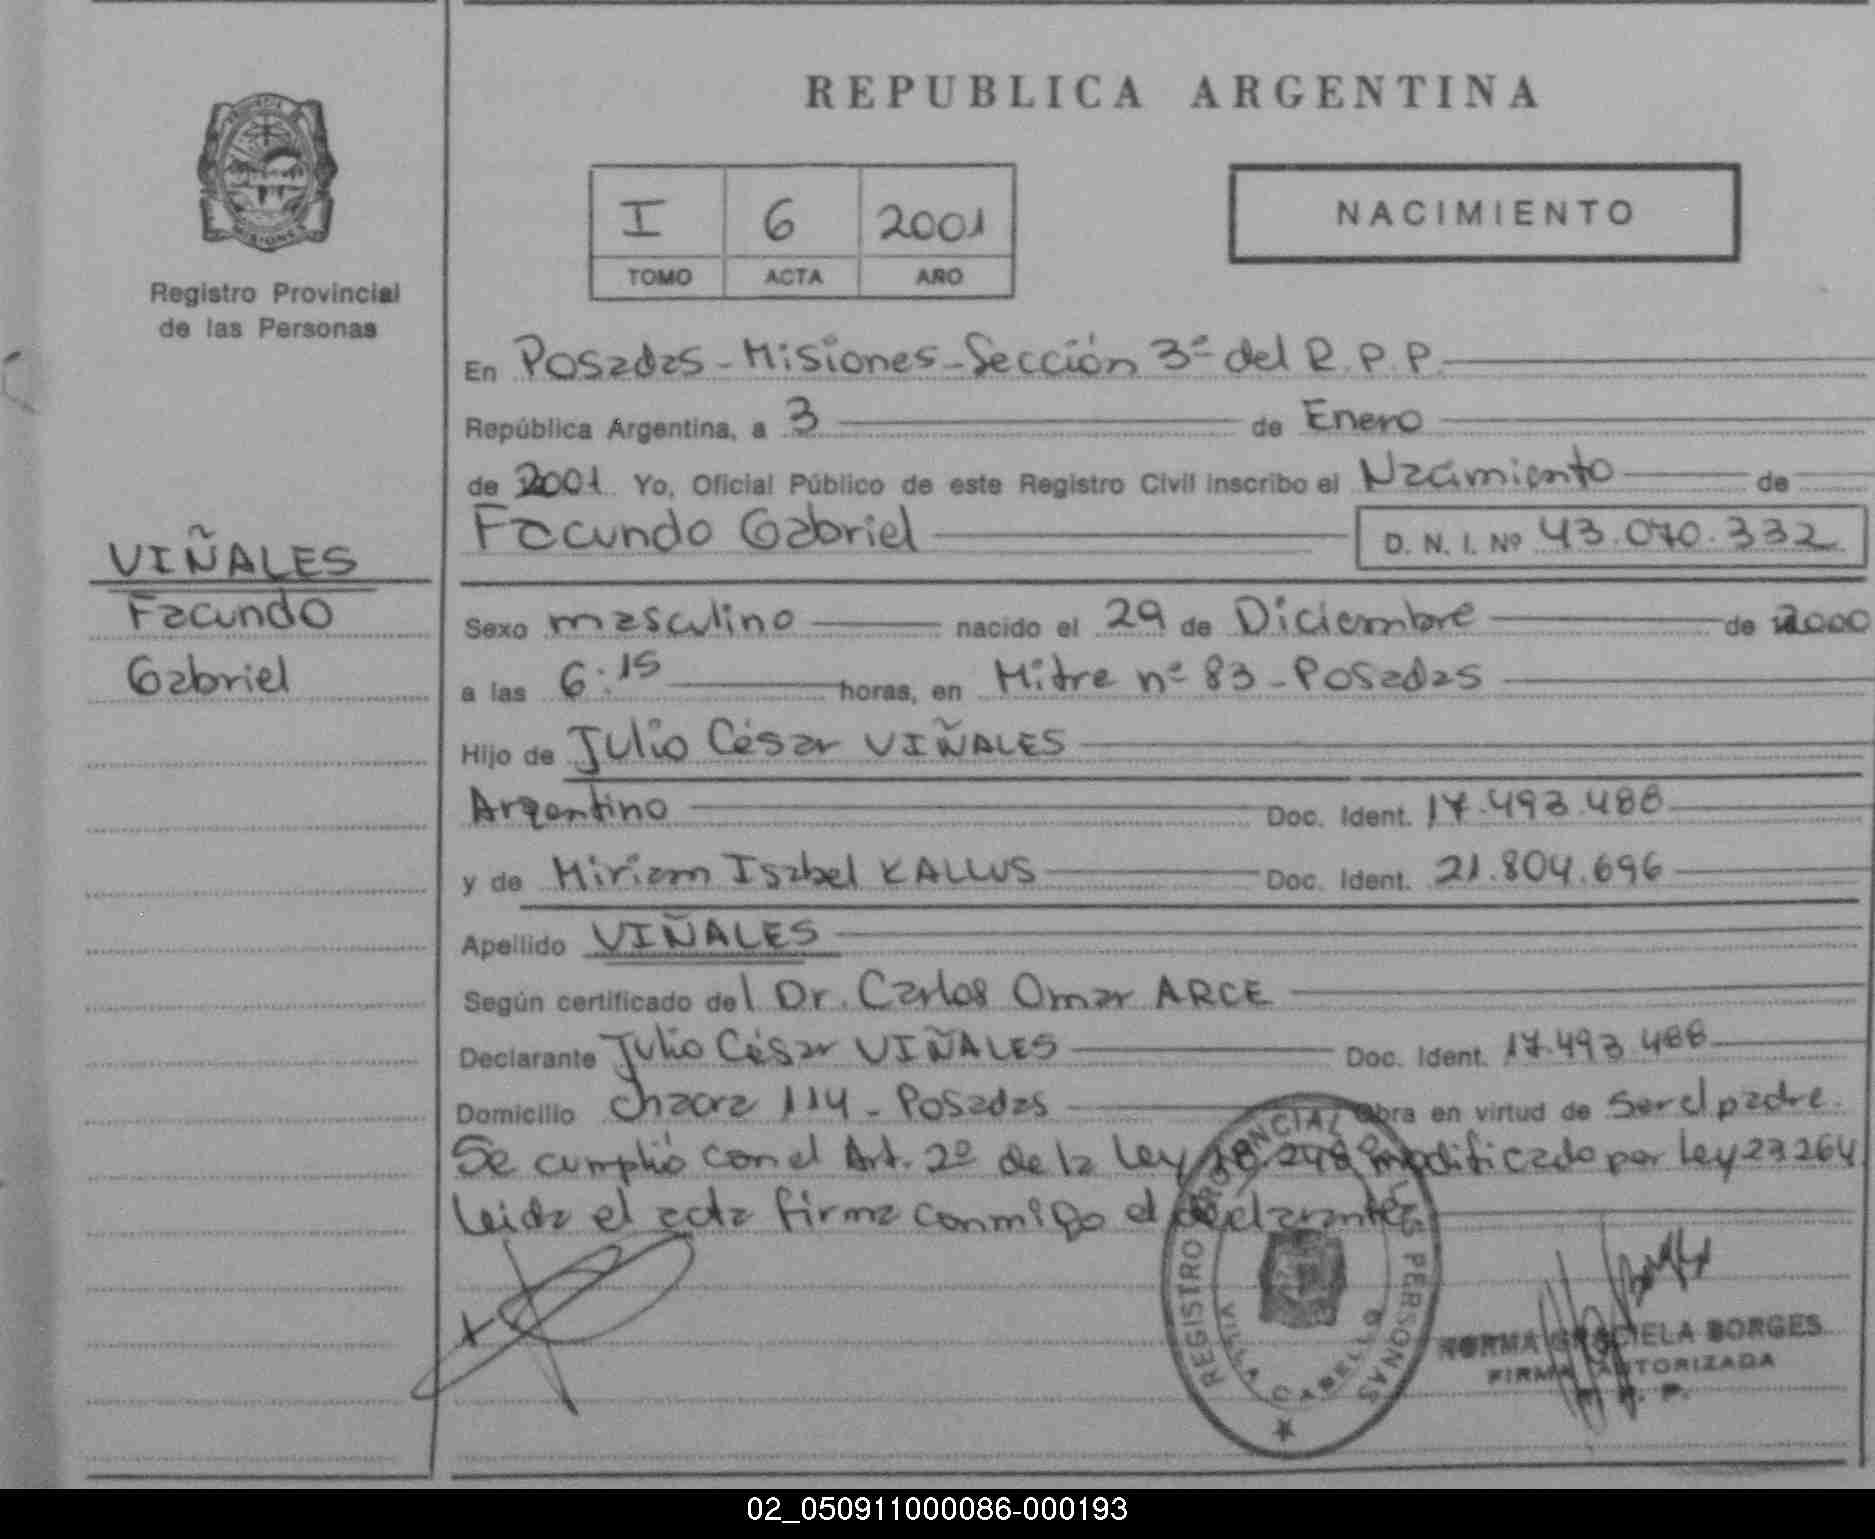 REPUBLICA ARGENTINA
I 6 2001
TOMO ACTA AÑO
NACIMIENTO
MISIONES
Registro Provincial
de las Personas
En Posadas - Misiones - Sección 3ª del R.P.P.
República Argentina, a 3 de Enero
de 2001 Yo, Oficial Público de este Registro Civil inscribo el Nacimiento de
Facundo Gabriel D. N. I. Nº 43.070.332
VIÑALES
Facundo
Gabriel
Sexo masculino nacido el 29 de Diciembre de 2000
a las 6:15 horas, en Mitre nº 83 - Posadas
Hijo de Julio César VIÑALES
Argentino Doc. Ident. 17.493.488
y de Miriam Isabel KALLUS Doc. Ident. 21.804.696
Apellido VIÑALES
Según certificado del Dr. Carlos Omar ARCE
Declarante Julio César VIÑALES Doc. Ident. 17.493.488
Domicilio Chacra 114 - Posadas Obra en virtud de ser el padre.
Se cumplió con el Art. 2º de la Ley 18.248 modificado por Ley 23.264
Leida el acta firma conmigo el declarante
REGISTRO PROVINCIAL DE LAS PERSONAS
VILLA CABELLO
NORMA GRACIELA BORGES
FIRMA AUTORIZADA
02_050911000086-000193